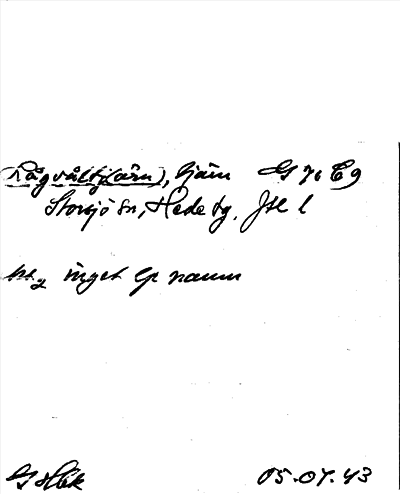 Rågvåltj(ärn), tjärn G 76 C9
Storsjö sn, Hede tg, Jtl l
inget gr namn
05.07.43